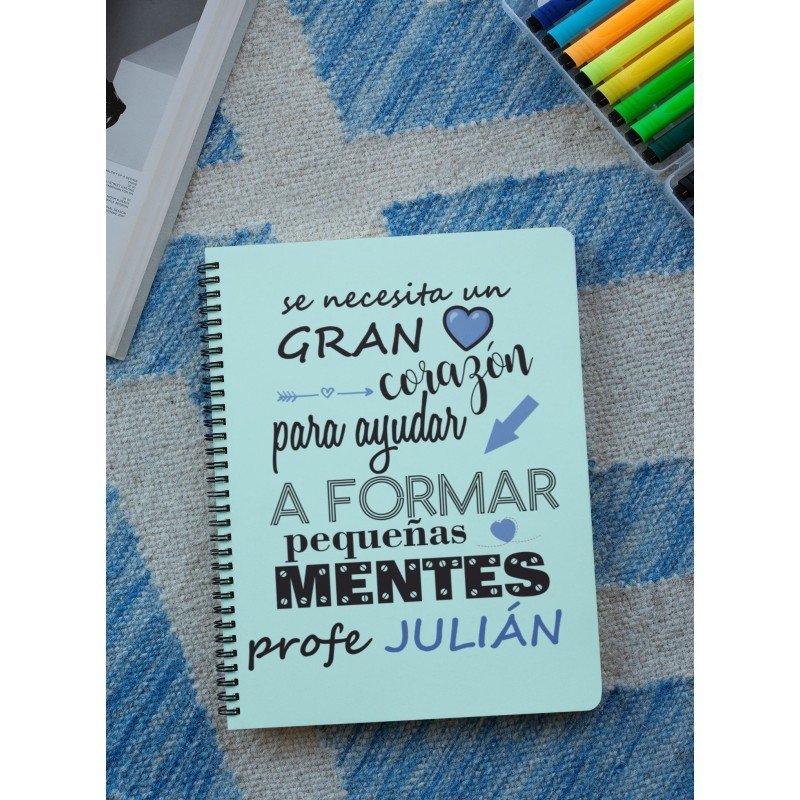 se necesita un
GRAN
corazón
para ayudar
A FORMAR
pequeñas
MENTES
profe JULIÁN